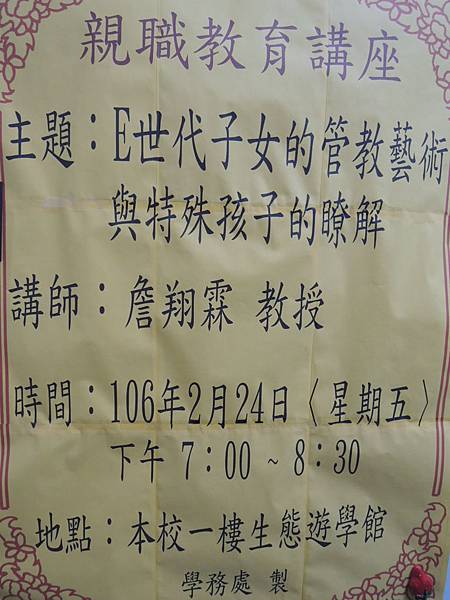 親職教育講座
主題：E世代子女的管教藝術
與特殊孩子的瞭解
講師：詹翔霖 教授
時間：106年2月24日〈星期五〉
下午 7：00 ~ 8：30
地點：本校一樓生態遊學館
學務處 製